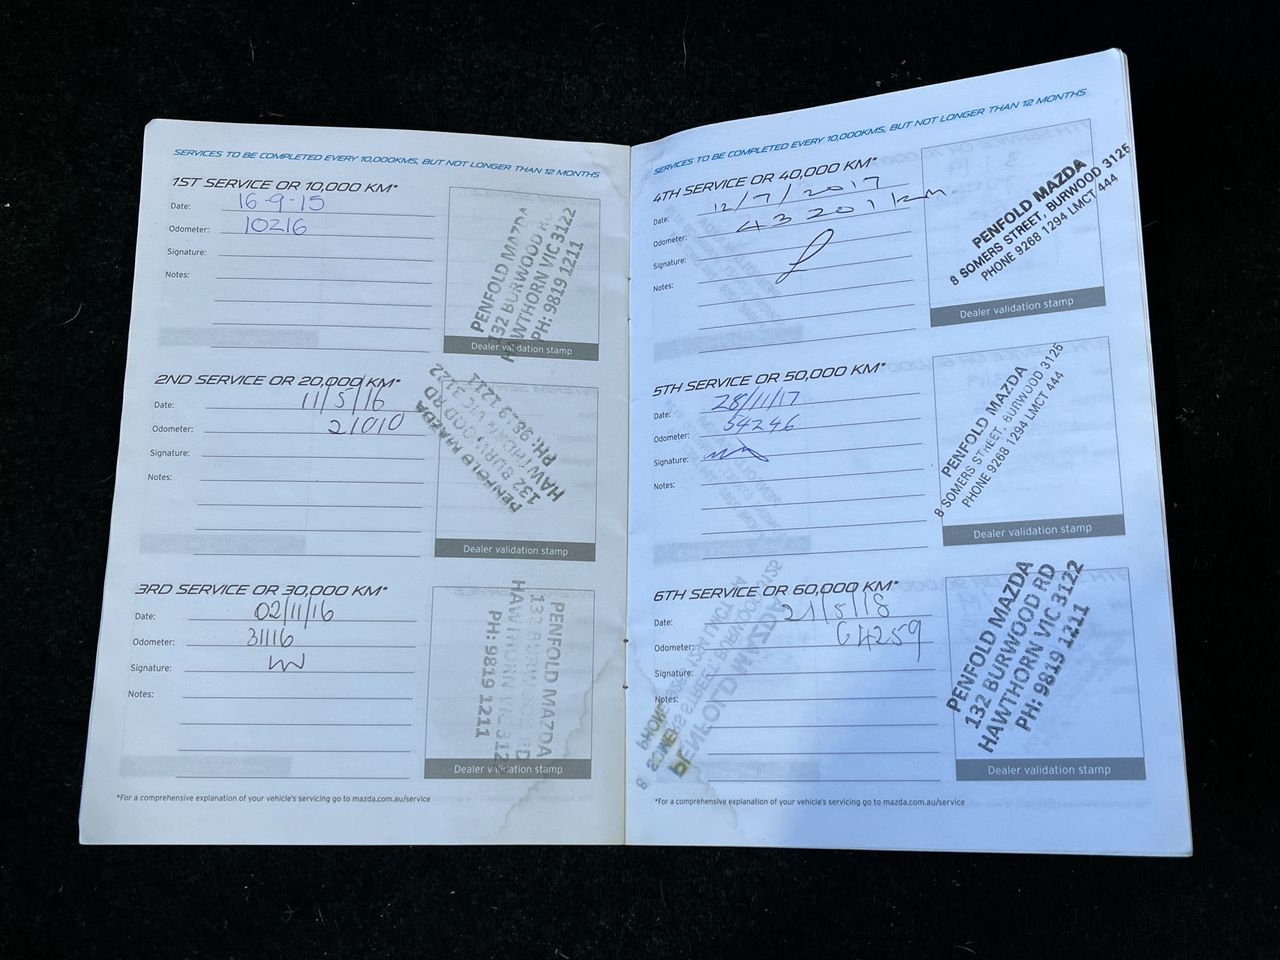 SERVICES TO BE COMPLETED EVERY 10,000KMS, BUT NOT LONGER THAN 12 MONTHS
1ST SERVICE OR 10,000 KM*
Date: 16-9-15
Odometer: 10216
Signature:
Notes:
PENFOLD MAZDA
132 BURWOOD RD
HAWTHORN VIC 3122
PH: 9819 1211
Dealer validation stamp
2ND SERVICE OR 20,000 KM*
Date: 11/5/16
Odometer: 21010
Signature:
Notes:
PENFOLD MAZDA
132 BURWOOD RD
HAWTHORN VIC 3122
PH: 9819 1211
Dealer validation stamp
3RD SERVICE OR 30,000 KM*
Date: 02/11/16
Odometer: 31116
Signature:
Notes:
PENFOLD MAZDA
132 BURWOOD RD
HAWTHORN VIC 312
PH: 9819 1211
Dealer validation stamp
*For a comprehensive explanation of your vehicle's servicing go to mazda.com.au/service
SERVICES TO BE COMPLETED EVERY 10,000KMS, BUT NOT LONGER THAN 12 MONTHS
4TH SERVICE OR 40,000 KM*
Date: 12/7/2017
Odometer: 43201km
Signature:
Notes:
PENFOLD MAZDA
8 SOMERS STREET, BURWOOD 3125
PHONE 9268 1294 LMCT 444
Dealer validation stamp
5TH SERVICE OR 50,000 KM*
Date: 28/11/17
Odometer: 54246
Signature:
Notes:
PENFOLD MAZDA
8 SOMERS STREET, BURWOOD 3125
PHONE 9268 1294 LMCT 444
Dealer validation stamp
6TH SERVICE OR 60,000 KM*
Date: 21/5/18
Odometer: 64259
Signature:
Notes:
PENFOLD MAZDA
132 BURWOOD RD
HAWTHORN VIC 3122
PH: 9819 1211
Dealer validation stamp
*For a comprehensive explanation of your vehicle's servicing go to mazda.com.au/service